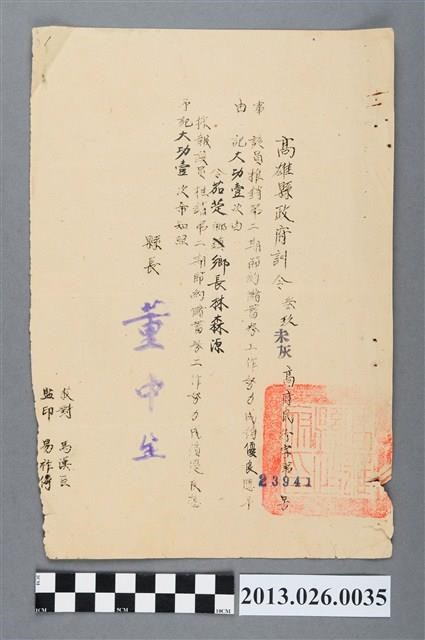 高雄縣政府訓令 叁玖未灰高府民行字第23941號
事 該員推銷第二期節約儲蓄券工作努力成績優良應予
由 記大功壹次由
令茄萣鄉鎮鄉長林森源
據報該員推銷第二期節約儲蓄券工作努力成績優良應
予記大功壹次希知照
縣長 董中生
校對 馬漢良
監印 易祚
2013.026.0035